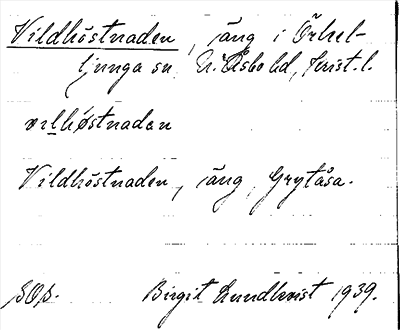 Vildhöstnaden, äng i Örkel-
ljunga sn, N. Åsbo hd, Krist. l.
vilhøstnadan
Vildhöstnaden, äng, Grytåsa.
SOp. Birgit Lundkvist 1939.